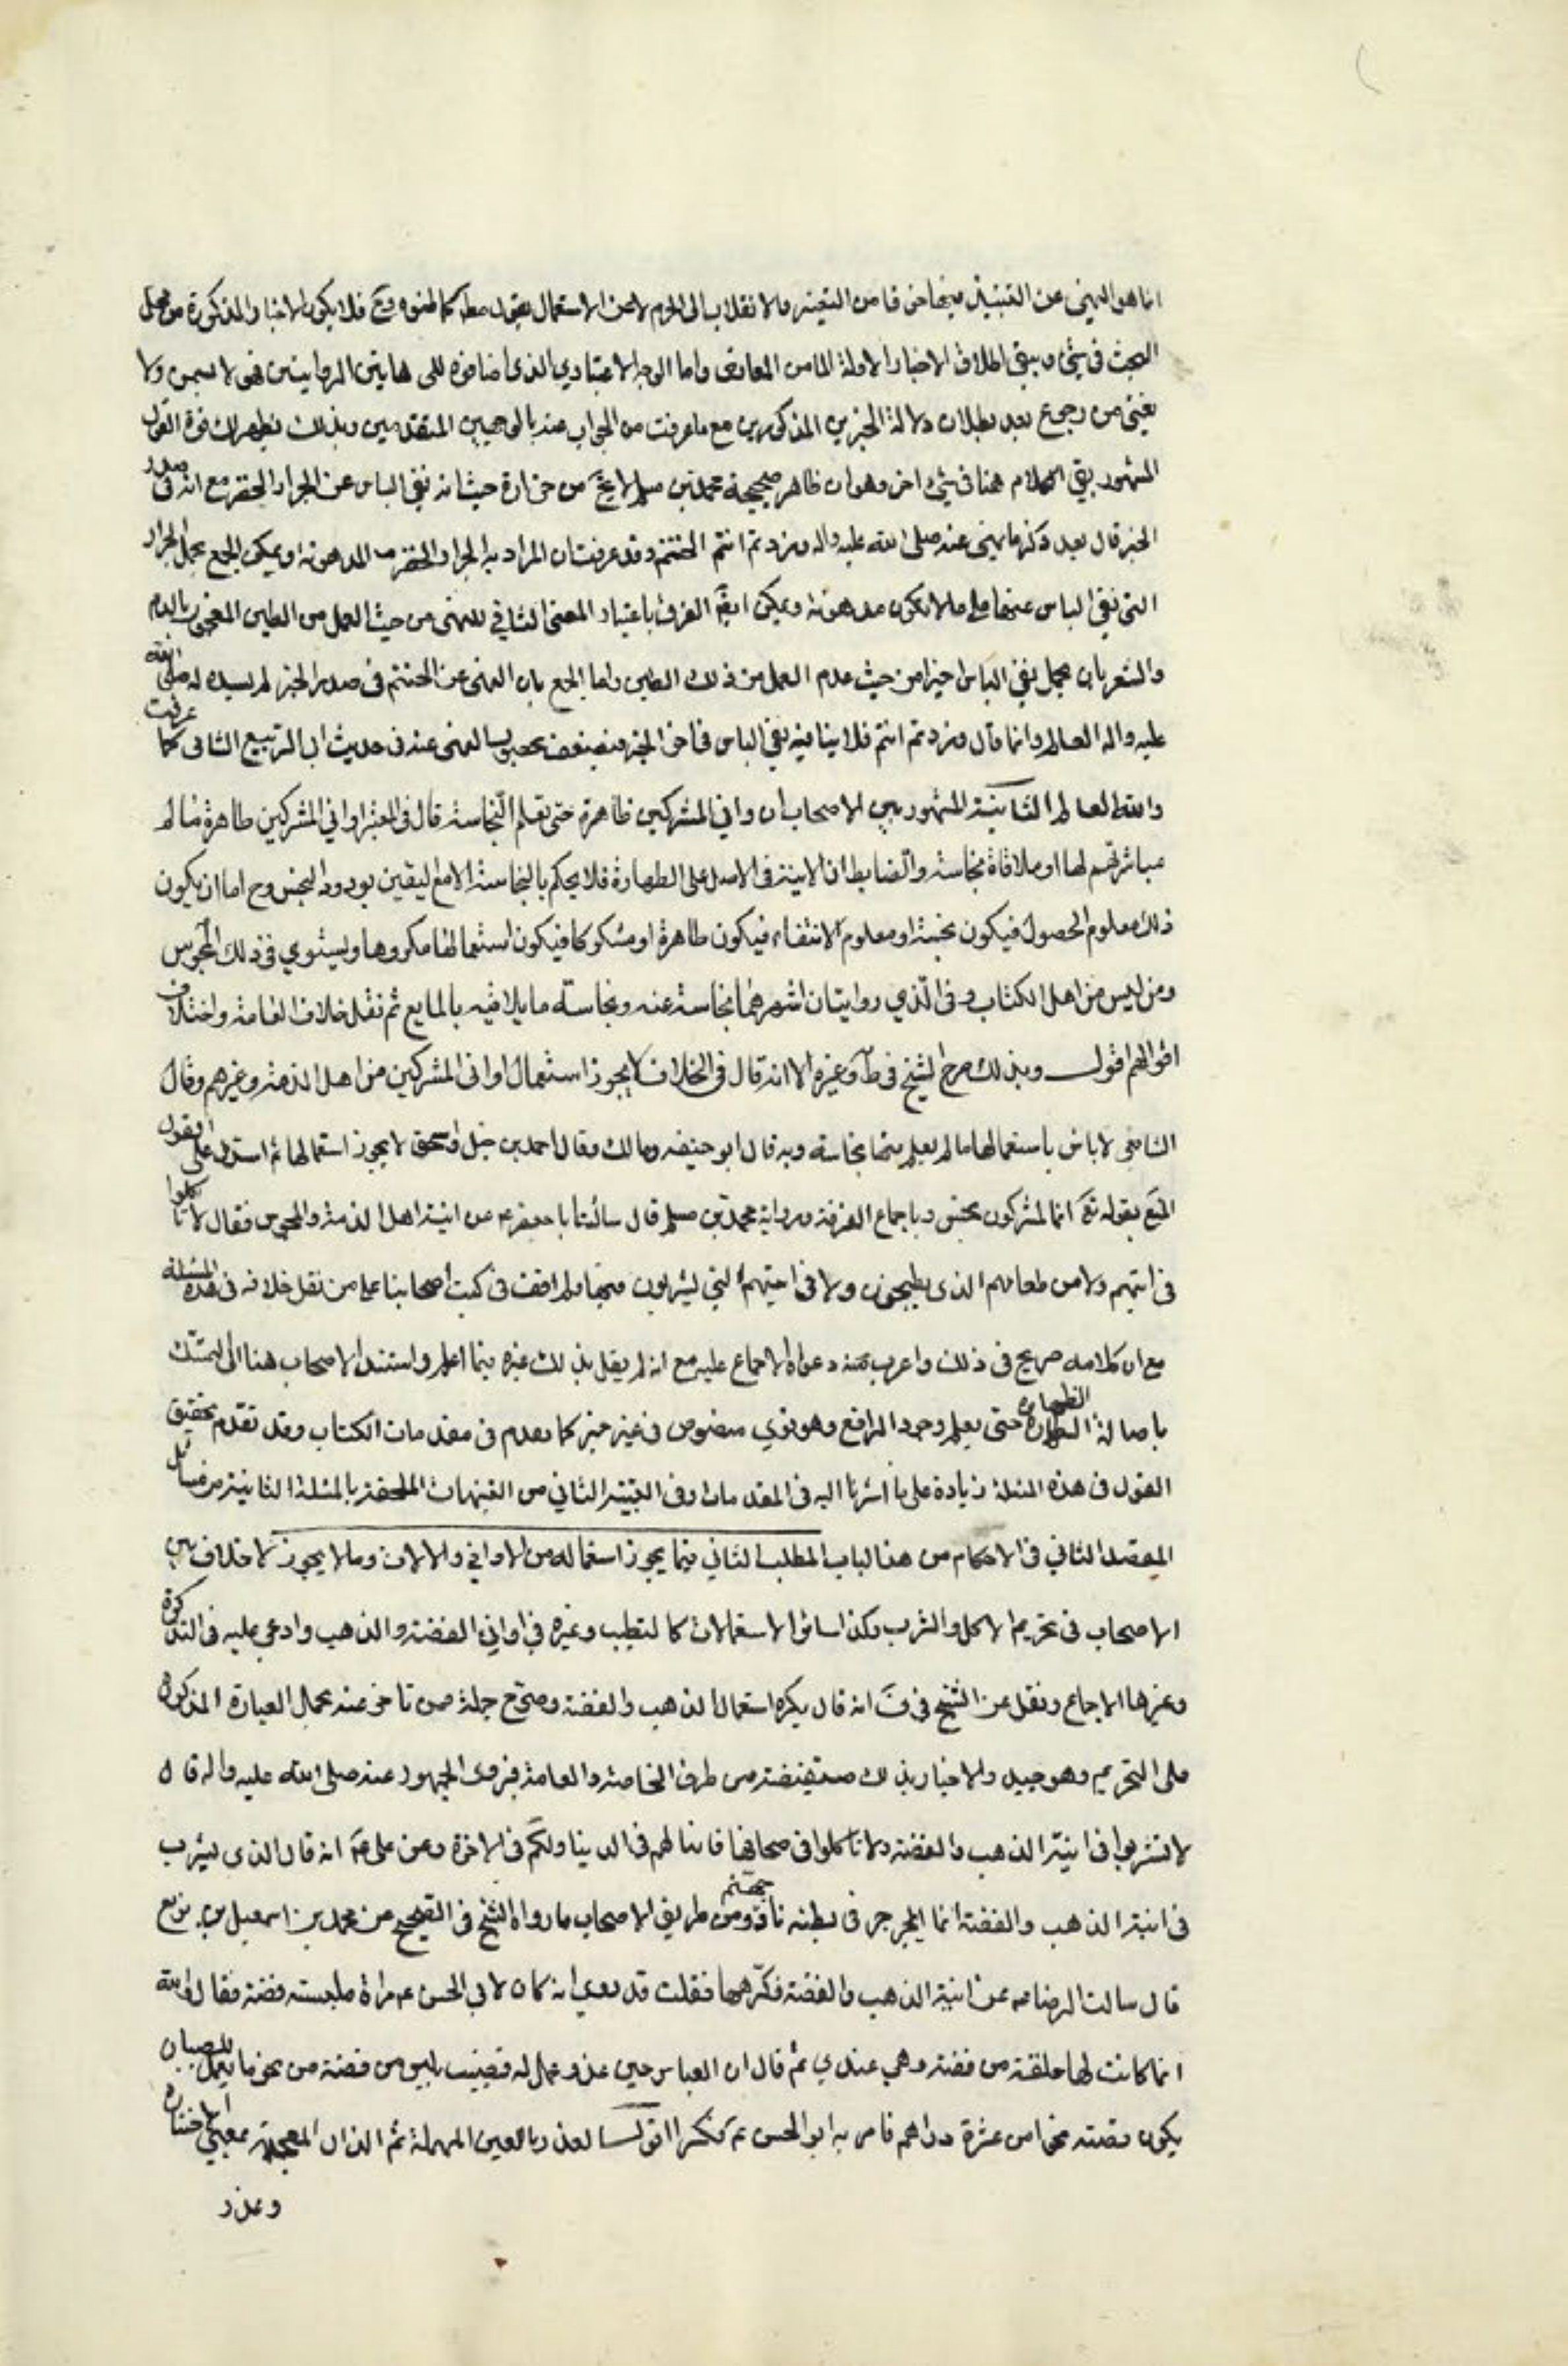 انما هو النهي عن التنبيذ فيها خوفا من التغير والانقلاب الى الحرم لا عن الاستعمال بقول مطلق كما فهموه وح فلا يكون الاخبار المذكورة من محل
البحث في شيء ويبقى اطلاق الاخبار الاولة سالما من المعارض واما الوجه الاعتباري الذي اضافوه الى هاتين الروايتين فهو لا يسمن ولا
يغني من رجوع بعد بطلان دلالة الخبرين المذكورين مع ما عرفت من الجواب عنه بالوجهين المتقدمين وبذلك يظهر لك قوة القول
المشهور بقي الكلام هنا في شيء اخر وهو ان ظاهر صحيحة محمد بن مسلم لا يخ من حزازة حيث انه نفى الباس عن الجرار الخضر مع انه في صدر
الخبر قال بعد ذكر ما نهى عنه صلى الله عليه واله وزدتم انتم الحنتم وقد عرفت ان المراد به الجرار الخضر المدهونة ويمكن الجمع بحمل الجرار
التي نفى الباس عنها على ما لا يكون مدهونة ويمكن ايضا الفرق باعتبار المعنى الثاني للنهي من حيث العمل من الطين المعجون بالدم
والشعر بان يحمل نفي الباس اخيرا من حيث عدم العمل من ذلك الطين واما الجمع بان النهي عن الحنتم في صدر الخبر لم يسنده له صلى الله
عليه واله العالم وانما قال وزدتم انتم فلا ينافيه نفي الباس في اخر الخبر فيضعف بحصول النهي عنه في حديث ابي الربيع الشامي كما عرفت
والله العالم الثانية المشهور بين الاصحاب ان اواني المشركين طاهرة حتى تعلم النجاسة قال في المعتبر اواني المشركين طاهرة ما لم
مباشرتهم لها او ملاقاة نجاسة والضابط ان الانية في الاصل على الطهارة فلا يحكم بالنجاسة الا مع اليقين بورود النجس وح اما ان يكون
ذلك معلوم الحصول فيكون نجسة او معلوم الانتفاء فيكون طاهرة او مشكوكا فيكون استعمالها مكروها ويستوي في ذلك المجوس
ومن ليس من اهل الكتاب وفي الذمي روايتان اشهرهما نجاسة عينه ونجاسة ما يلاقيه بالمايع ثم نقل خلاف العامة واختلاف
اقوالهم اقول وبذلك صرح الشيخ في ط وغيره الا انه قال في الخلاف لا يجوز استعمال اواني المشركين من اهل الذمة وغيرهم وقال
الشافعي لا باس باستعمالها ما لم يعلم فيها نجاسة وبه قال ابو حنيفه ومالك وقال احمد بن حنبل واسحق لا يجوز استعمالها ثم استدل على القول
المنع بقوله تع انما المشركون نجس وباجماع الفرقة ورواية محمد بن مسلم قال سالت ابا جعفر ع عن انية اهل الذمة والمجوس فقال لا تاكلوا
في انيتهم ولا من طعامهم الذي يطبخون ولا في انيتهم التي يشربون فيها ولم اقف في كتب اصحابنا على من نقل خلافه في هذه المسئلة
مع ان كلامه صريح في ذلك واغرب منه دعواه الاجماع عليه مع انه لم يقل بذلك غيره فيما اعلم واستند الاصحاب هنا الى التمسك
باصالة الطهارة حتى يعلم وجود الرافع وهو قوي منصوص في غير خبر كما تقدم في مقدمات الكتاب وقد تقدم تحقيق
القول في هذه المسئلة زيادة على ما اشرنا اليه في المقدمات وفي التنبيه الثاني من التنبيهات الملحقة بالمسئلة الثانية من مسائل
المقصد الثاني في الاحكام من هذا الباب المطلب الثاني فيما يجوز استعماله من الاواني والالات وما لا يجوز لا خلاف بين
الاصحاب في تحريم الاكل والشرب وكذا سائر الاستعمالات كالتطيب وغيره في اواني الفضة والذهب وادعى عليه في التذكرة
وغيرها الاجماع ونقل عن الشيخ في ف انه قال يكره استعمال الذهب والفضة وصرح جملة ممن تاخر عنه بحمل العبارة المذكورة
على التحريم وهو جيد والاخبار بذلك مستفيضة من طرق الخاصة والعامة فروى الجمهور عنه صلى الله عليه واله قال
لا تشربوا في انية الذهب والفضة ولا تاكلوا في صحافها فانها لهم في الدنيا ولكم في الاخرة وعن علي ع انه قال الذي يشرب
في انية الذهب والفضة انما يجرجر في بطنه نار جهنم ومن طريق الاصحاب ما رواه الشيخ في الصحيح عن محمد بن اسمعيل بن بزيع
قال سالت الرضا ع عن انية الذهب والفضة فكرههما فقلت قد روي انه كان لابي الحسن ع مراة ملبسة فضة فقال لا والله
انما كانت لها حلقة من فضة وهي عندي ثم قال ان العباس حين عذر عمل له قضيب ملبس من فضة من نحو ما يعمل للصبيان
يكون فضته نحوا من عشرة دراهم فامر به ابو الحسن ع فكسر اقول عذر بالعين المهملة ثم الذال المعجمة بمعنى اختتن
وعذر